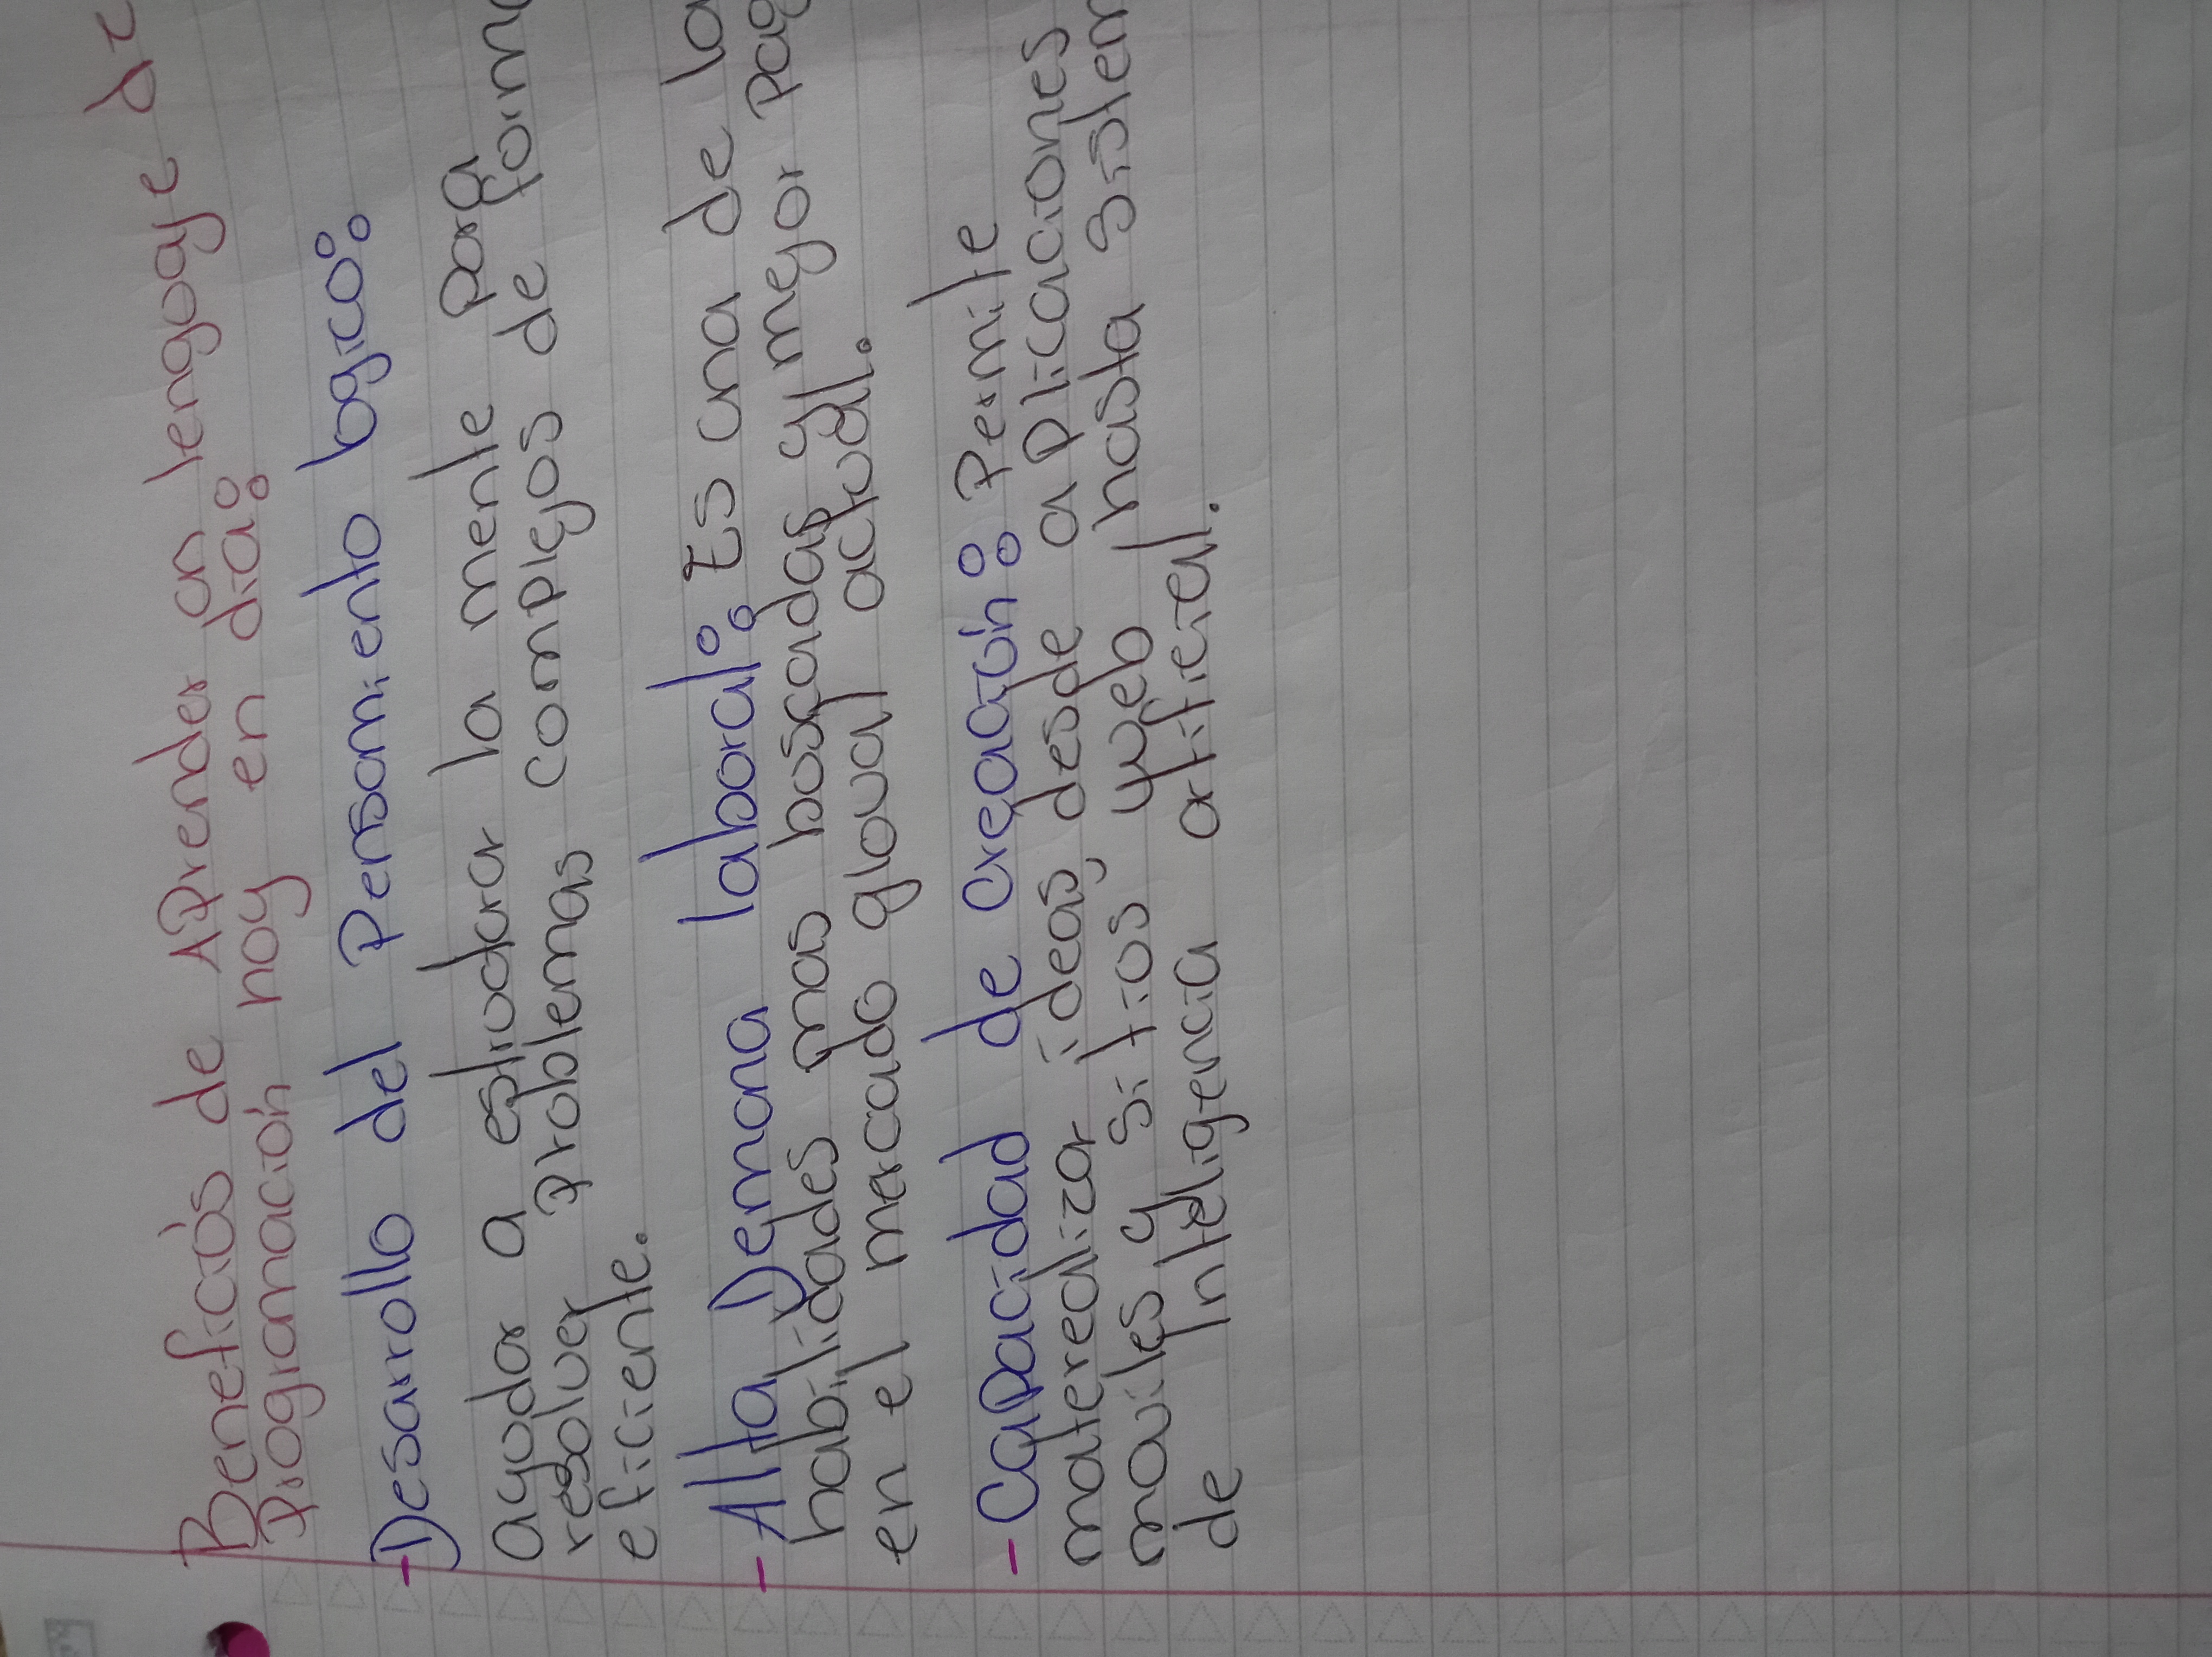 Beneficios de APrender un lengogje de
Programación hoy en dia:
- Desarrollo del Pensamiento logico:
ayudar a estrudurar la mente para
resolver problemas complejos de forma
eficiente.
- Alta Demana laboral: Es una de la
habilidades mas buscadas y mejor pag
en el mercado gloval actual.
- Capacidad de creación: Permite
materealizar ideas, desde aplicaciones
moviles y sitios web hasta sistem
de Inteligencia artificial.